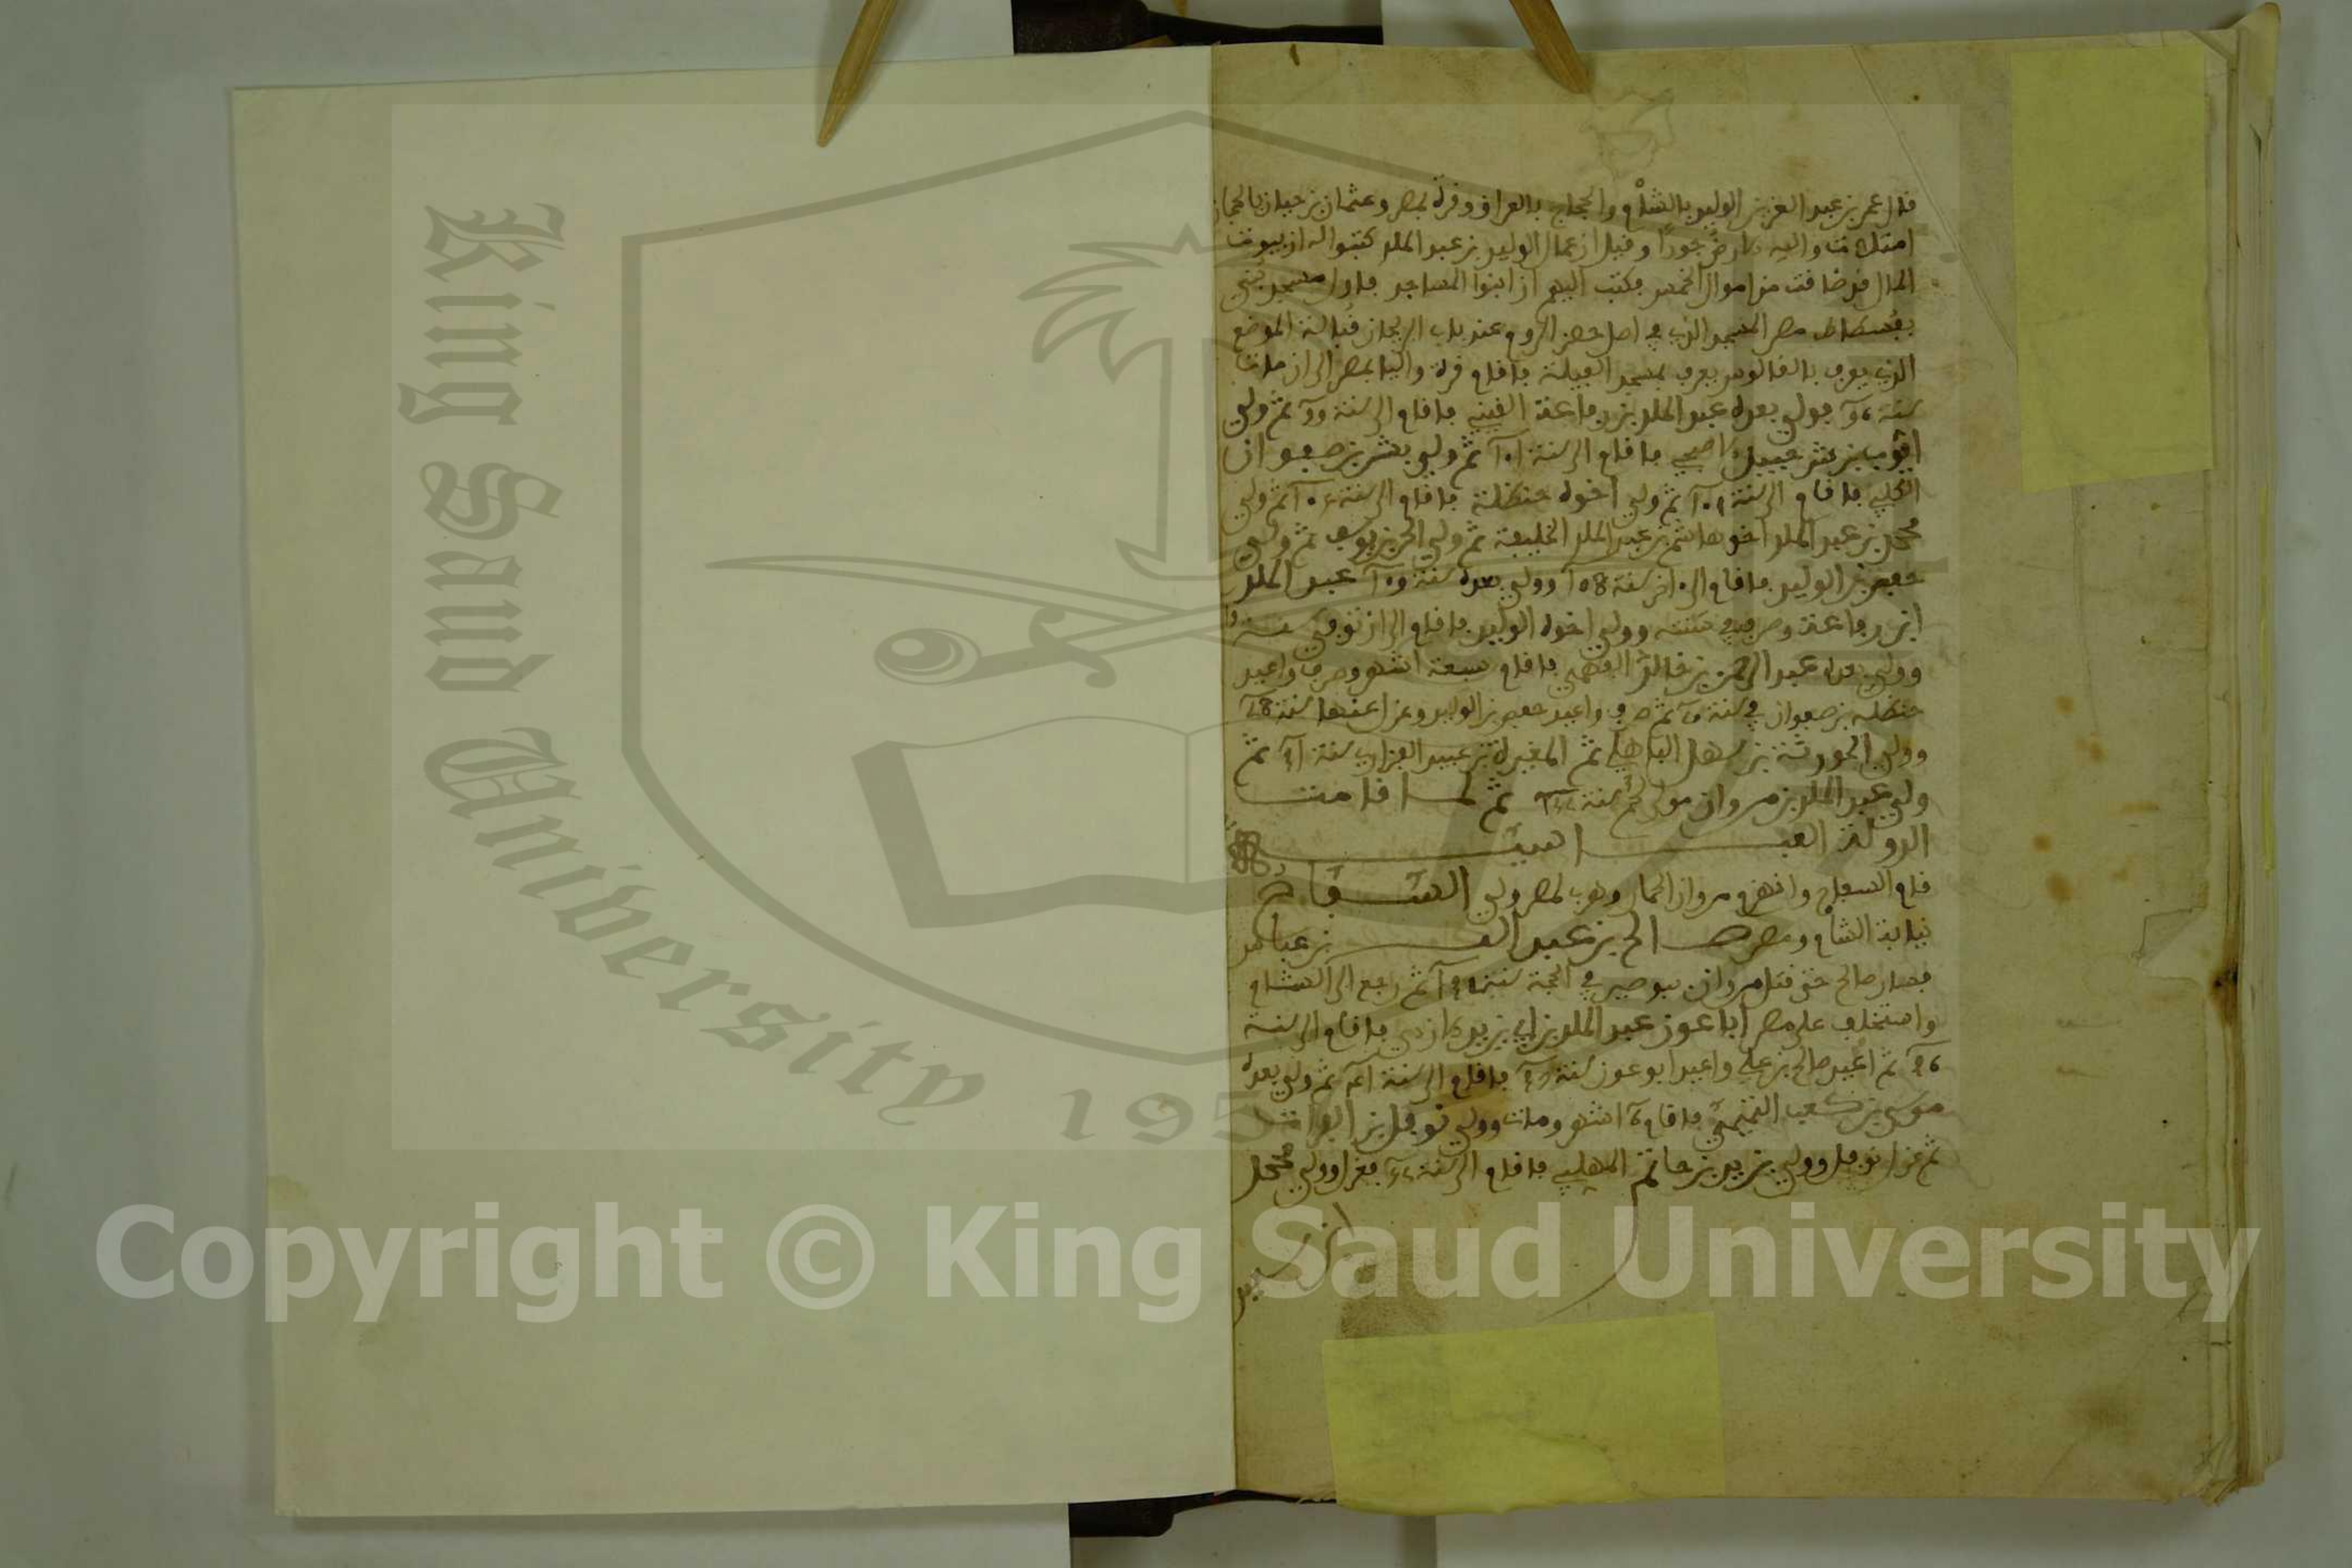 قال عمر بن عبد العزيز الوليد بالشام والحجاج بالعراق وقرة بمصر وعثمان بن حيان بالحجاز
امتلات والله الارض جورا وقيل ان عمال الوليد بن عبد الملك كتبوا له ان بيوت
المال قد ضاقت من اموال الخمس فكتب اليهم ان ابنوا المساجد فاول مسجد بني
بفسطاط مصر المسجد الذي في اصل حصن الروم عند باب الريحان قبالة الموضع
الذي يعرف بالقالوس يعرف بمسجد القيلة فاقام قرة واليا بمصر الى ان مات
سنة فولي بعده عبد الملك بن رفاعة القيني فاقام الى سنة ثم ولي
ايوب بن شرحبيل الاصبحي فاقام الى سنة 101 ثم ولي بشر بن صفوان
الكلبي فاقام الى سنة ثم ولي اخوه حنظلة فاقام الى سنة ثم ولي
محمد بن عبد الملك اخو هاشم بن عبد الملك الخليفة ثم ولي الحر بن يوسف ثم ولي
حفص بن الوليد فاقام الى اخر سنة 108 وولي بعده سنة عبد الملك
ابن رفاعة وصرف في سنته وولي اخوه الوليد فاقام الى ان توفي سنة
وولي بعده عبد الرحمن بن خالد الفهمي فاقام سبعة اشهر وصرف واعيد
حنظلة بن صفوان في سنة ثم صرف واعيد حفص بن الوليد وعزل عنها سنة
وولي الحورثة بن سهل الباهلي ثم المغيرة بن عبيد الفزاري سنة ثم
ولي عبد الملك بن مروان مولى لخم سنة ثم لما قامت
الدولة العباسية
قام السفاح وانهزم مروان الحمار وهرب لمصر ولي السفاح
نيابة الشام ومصر صالح بن عبد الله بن عباس
فصار صالح حتى قتل مروان ببوصير في الحجة سنة ثم رجع الى الشام
واستخلف على مصر ابا عون عبد الملك بن ابي يزيد الازدي فاقام الى سنة
ثم اعيد صالح بن علي واعيد ابو عون سنة فاقام الى سنة ثم ولي بعده
موسى بن كعب التميمي فاقام اشهر ومات وولي نوفل بن الفرات
ثم عزل نوفل وولي يزيد بن حاتم المهلبي فاقام الى سنة فعزل وولي محمد
ابن سعيد
King Saud University 195
Copyright © King Saud University